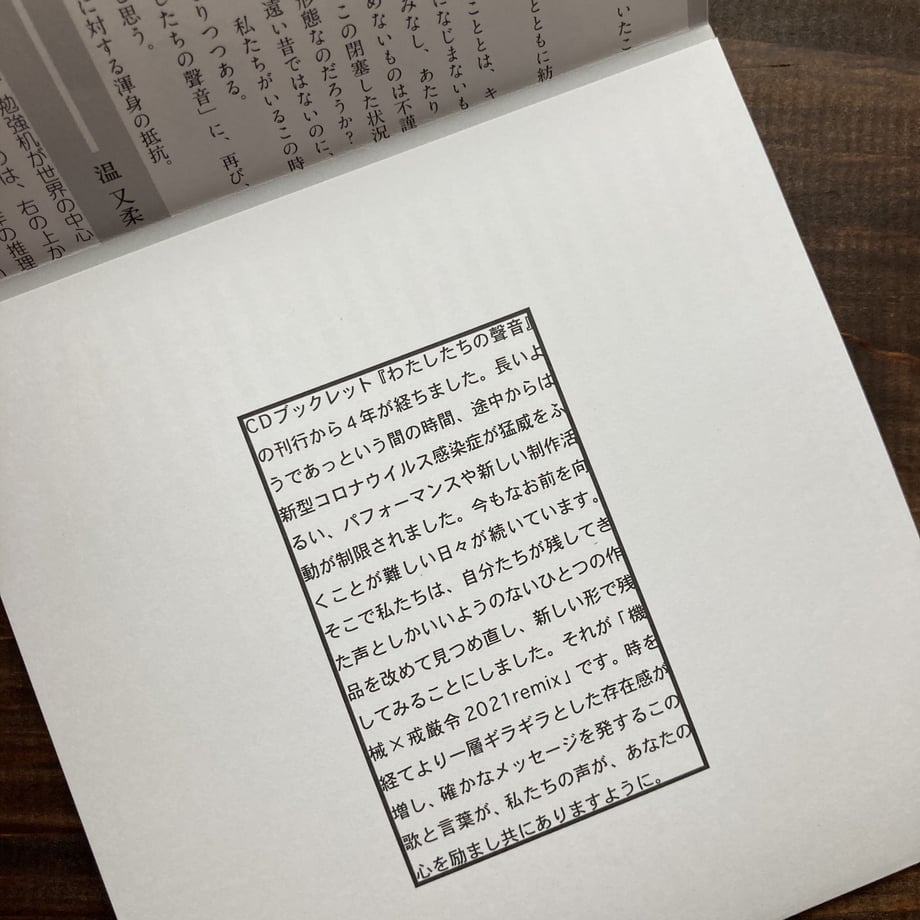 いたこ
とともに紡
こととは、キ
になじまないも
みなし、あたり
めないものは不謹
この閉塞した状況
形態なのだろうか?
遠い昔ではないのに、
私たちがいるこの時
りつつある。
したちの聲音」に、再び、
と思う。
に対する渾身の抵抗。
温 又柔
勉強机が世界の中心
のは、右の上か
年の推理
CDブックレット『わたしたちの聲音』
の刊行から4年が経ちました。長いよ
うであっという間の時間、途中からは
新型コロナウイルス感染症が猛威をふ
るい、パフォーマンスや新しい制作活
動が制限されました。今もなお前を向
くことが難しい日々が続いています。
そこで私たちは、自分たちが残してき
た声としかいいようのないひとつの作
品を改めて見つめ直し、新しい形で残
してみることにしました。それが「機
械×戒厳令2021remix」です。時を
経てより一層ギラギラとした存在感が
増し、確かなメッセージを発するこの
歌と言葉が、私たちの声が、あなたの
心を励まし共にありますように。